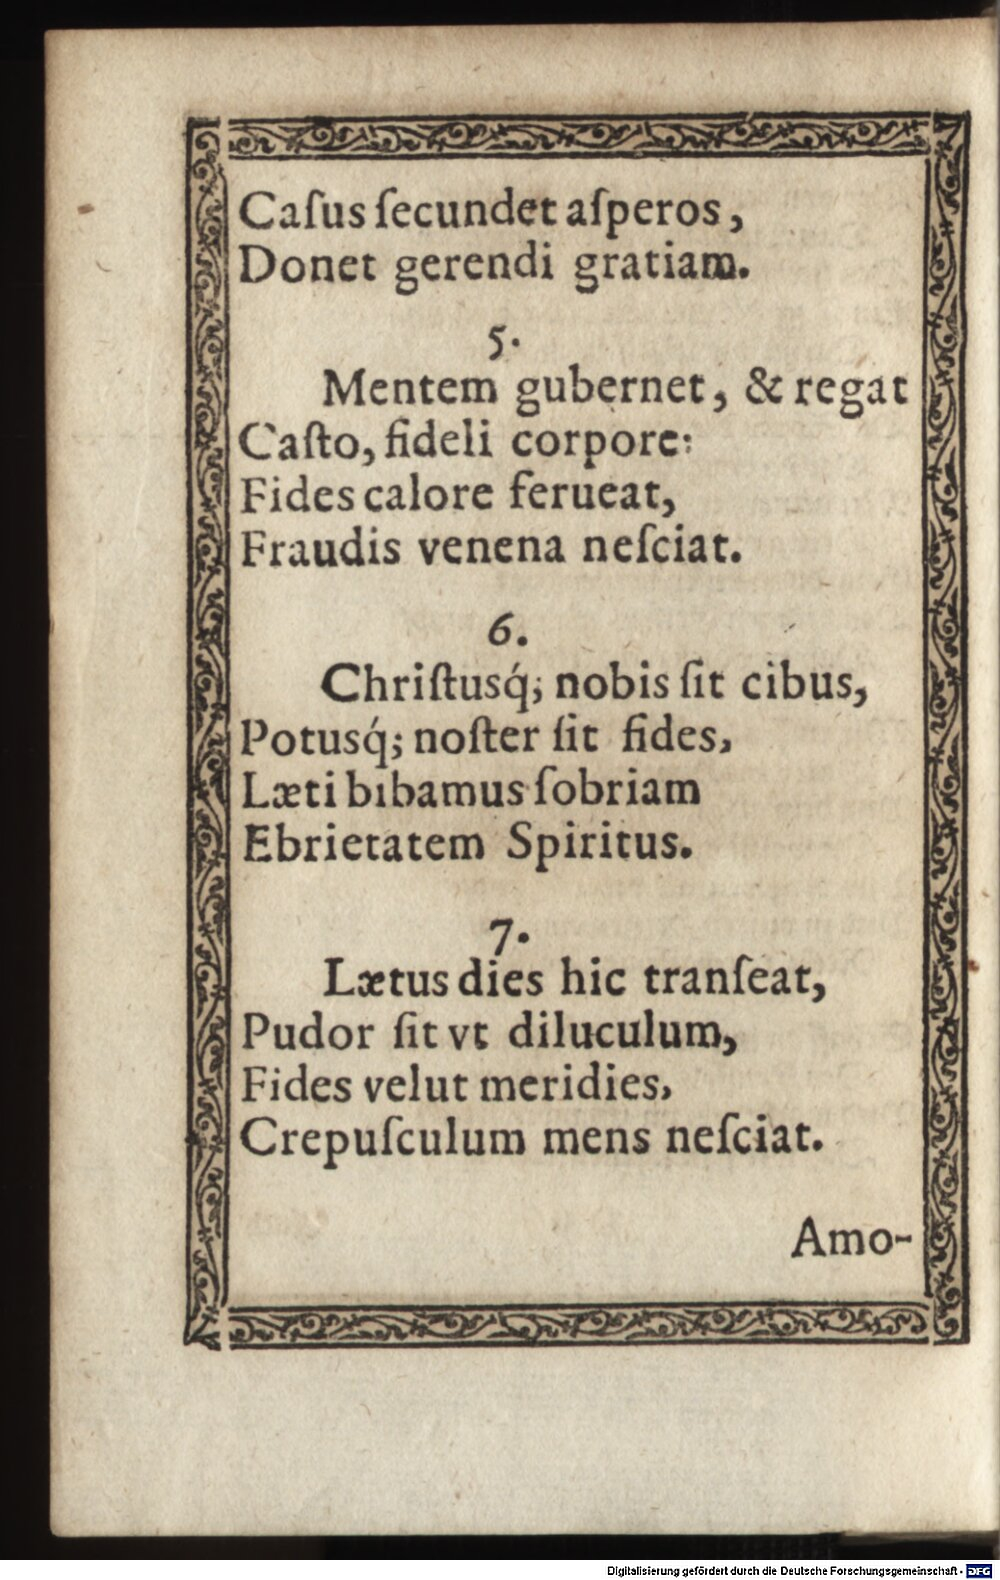 Caſus ſecundet aſperos,
Donet gerendi gratiam.
5.
Mentem gubernet, & regat
Caſto, fideli corpore:
Fides calore ferueat,
Fraudis venena neſciat.
6.
Chriſtusq́; nobis ſit cibus,
Potusq́; noſter ſit fides,
Læti bibamus ſobriam
Ebrietatem Spiritus.
7.
Lætus dies hic tranſeat,
Pudor ſit vt diluculum,
Fides velut meridies,
Crepuſculum mens neſciat.
Amo-
Digitalisierung gefördert durch die Deutsche Forschungsgemeinschaft - DFG